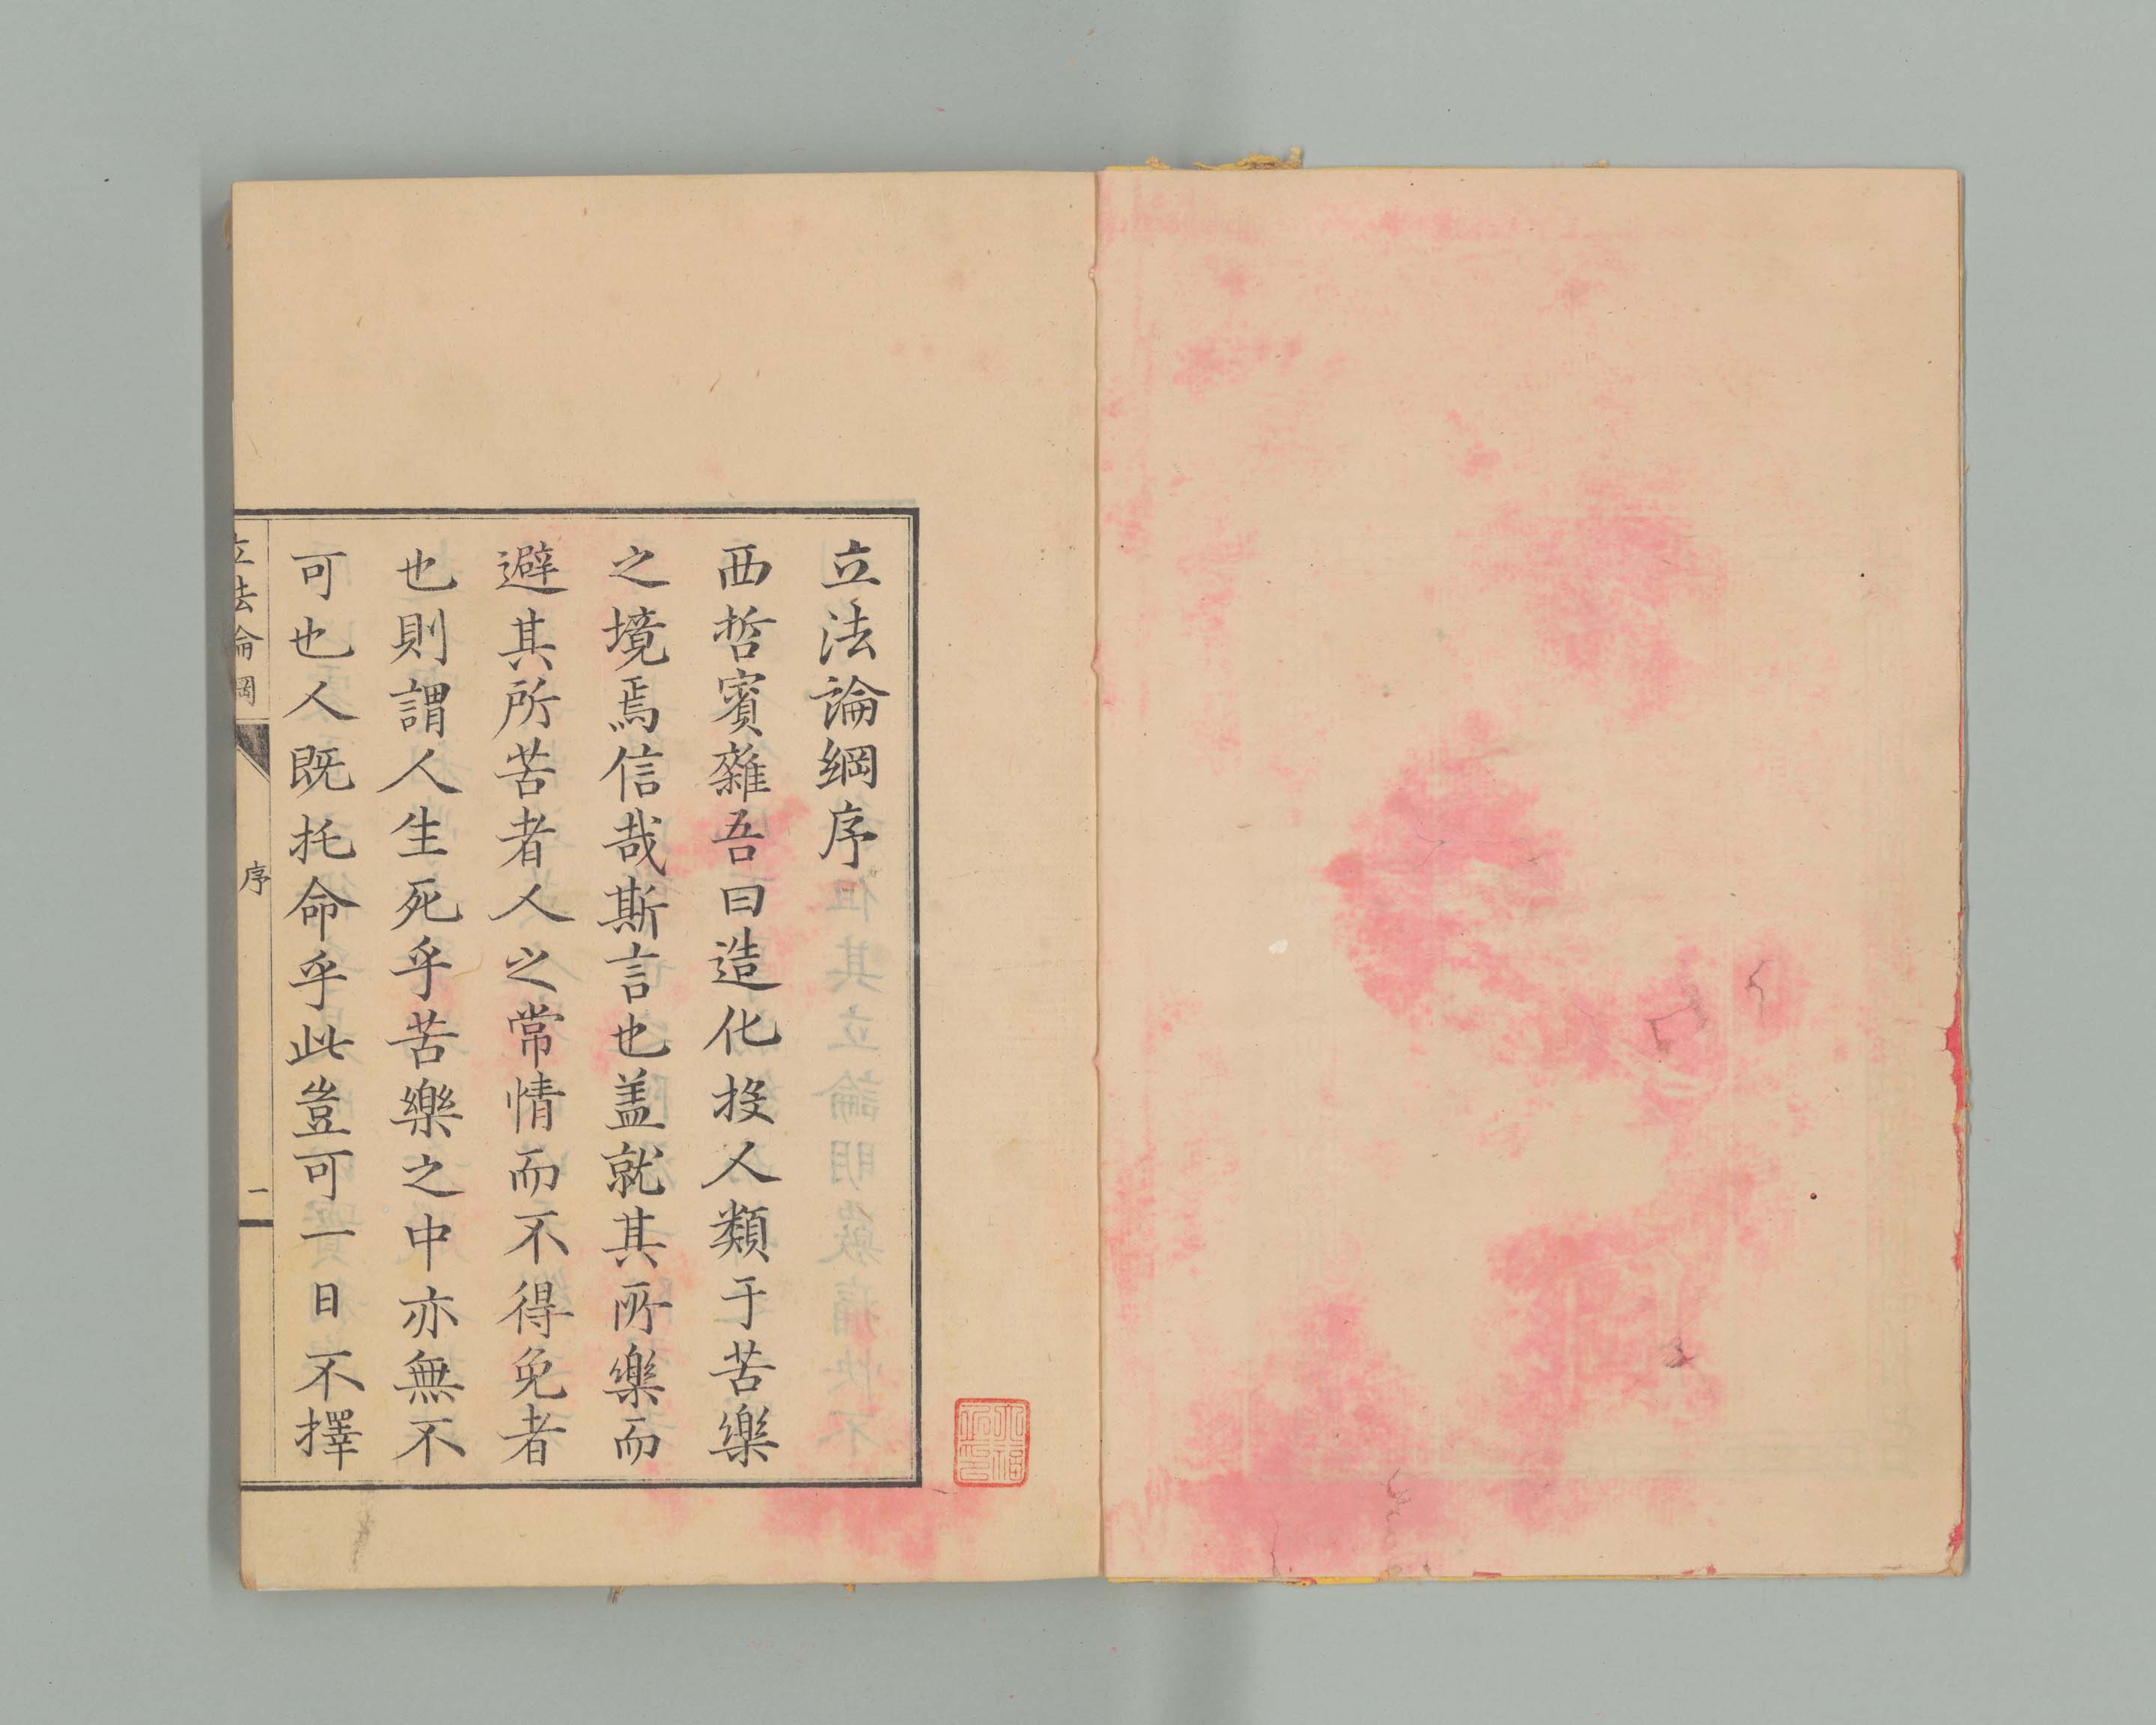 立法論綱序
西哲賓雜吾曰造化投人類于苦樂
之境焉信哉斯言也盖就其所樂而
避其所苦者人之常情而不得免者
也則謂人生死乎苦樂之中亦無不
可也人既托命乎此豈可一日不擇
立法論綱
序
一